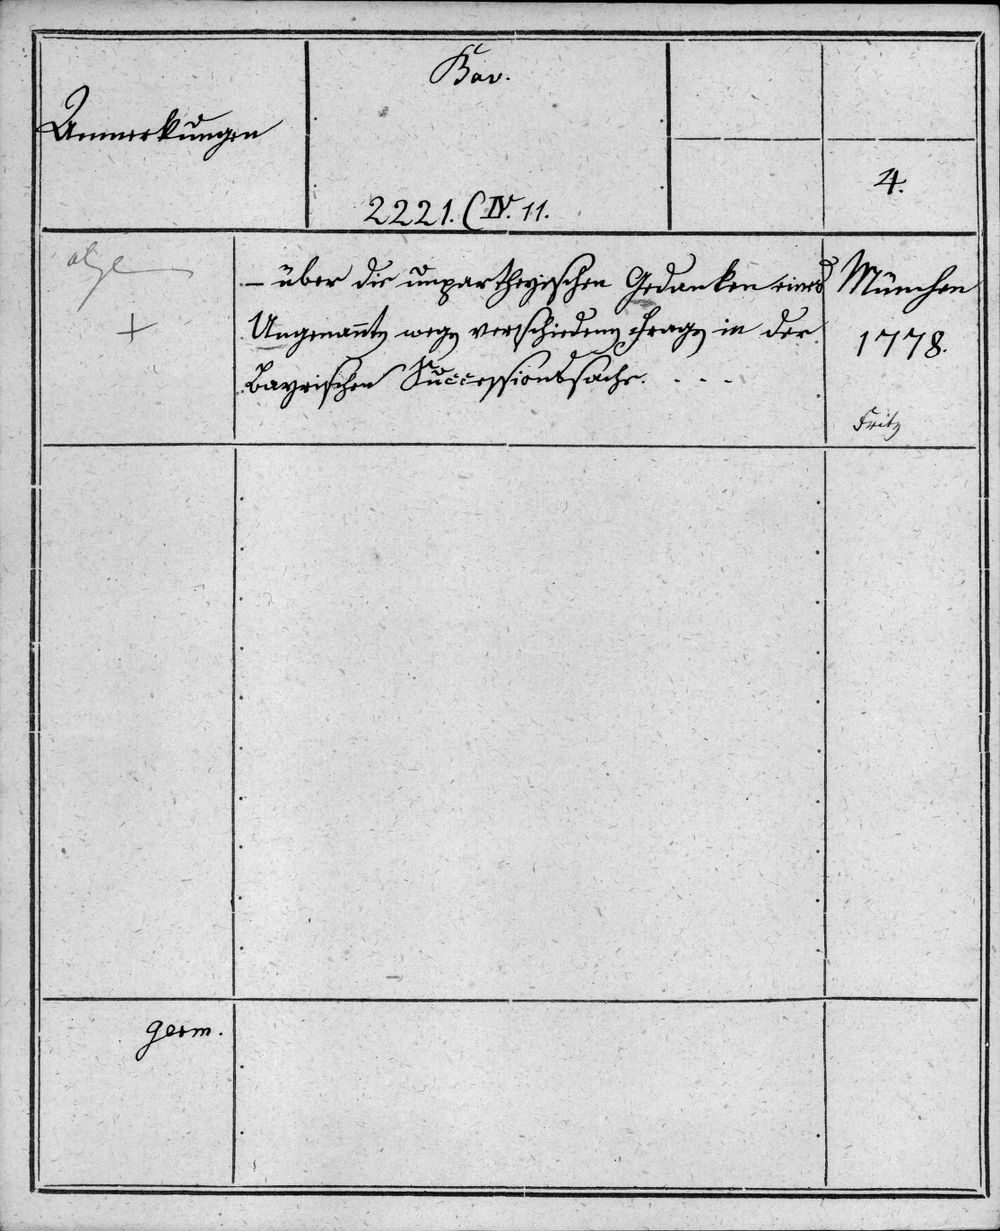 Anmerkungen
Bav.
2221. (IV. 11.
4.
– über die unpartheyischen Gedanken eines
Ungenannten wegen verschiedenen Fragen in der
Bayrischen Successionssache. . . .
München
1778.
Fritz
+
germ.